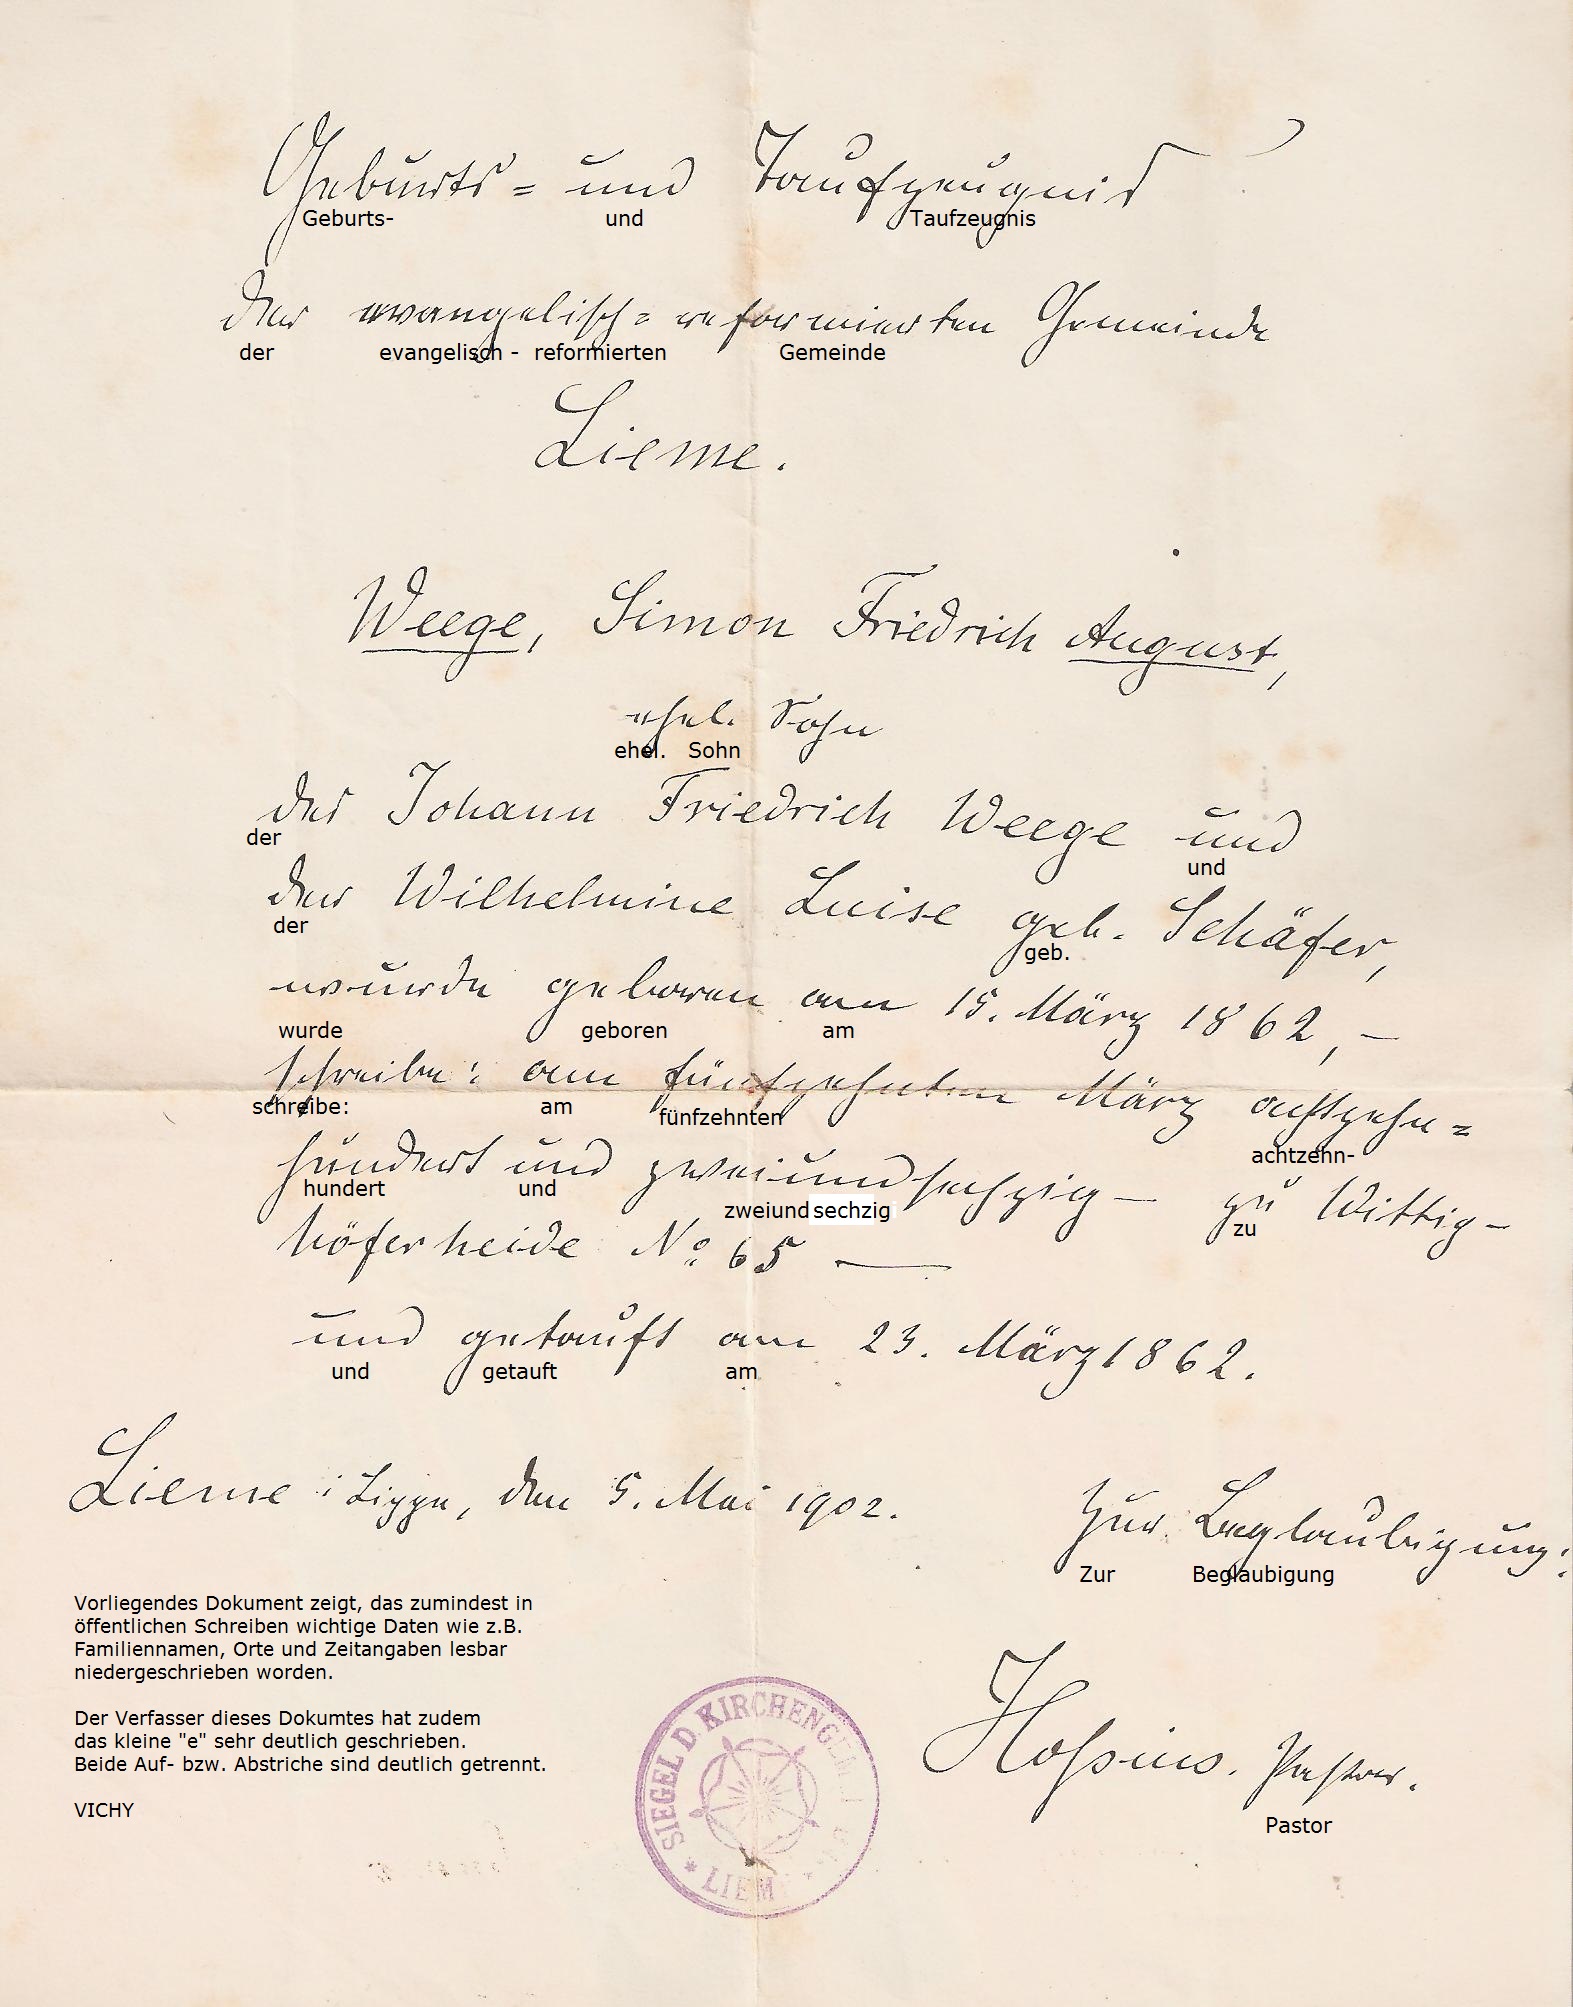 Geburts= und Taufzeugnis
Geburts- und Taufzeugnis
der evangelisch=reformierten Gemeinde
der evangelisch - reformierten Gemeinde
Lieme.
Weege, Simon Friedrich August,
ehel. Sohn
ehel. Sohn
des Johann Friedrich Weege und
der und
der Wilhelmine Luise geb. Schäfer,
der geb.
wurde geboren am 15. März 1862, —
wurde geboren am
schreibe: am fünfzehnten März achtzehn=
schreibe: am fünfzehnten achtzehn-
hundert und zweiundsechzig — zu Wittig-
hundert und zweiundsechzig zu
höferheide No 65 —
und getauft am 23. März 1862.
und getauft am
Lieme i Lippe, den 5. Mai 1902.
Zur Beglaubigung:
Zur Beglaubigung
Vorliegendes Dokument zeigt, das zumindest in
öffentlichen Schreiben wichtige Daten wie z.B.
Familiennamen, Orte und Zeitangaben lesbar
niedergeschrieben worden.
Der Verfasser dieses Dokumtes hat zudem
das kleine "e" sehr deutlich geschrieben.
Beide Auf- bzw. Abstriche sind deutlich getrennt.
VICHY
SIEGEL D. KIRCHENGEM.
* LIEME
Pastor.
Pastor